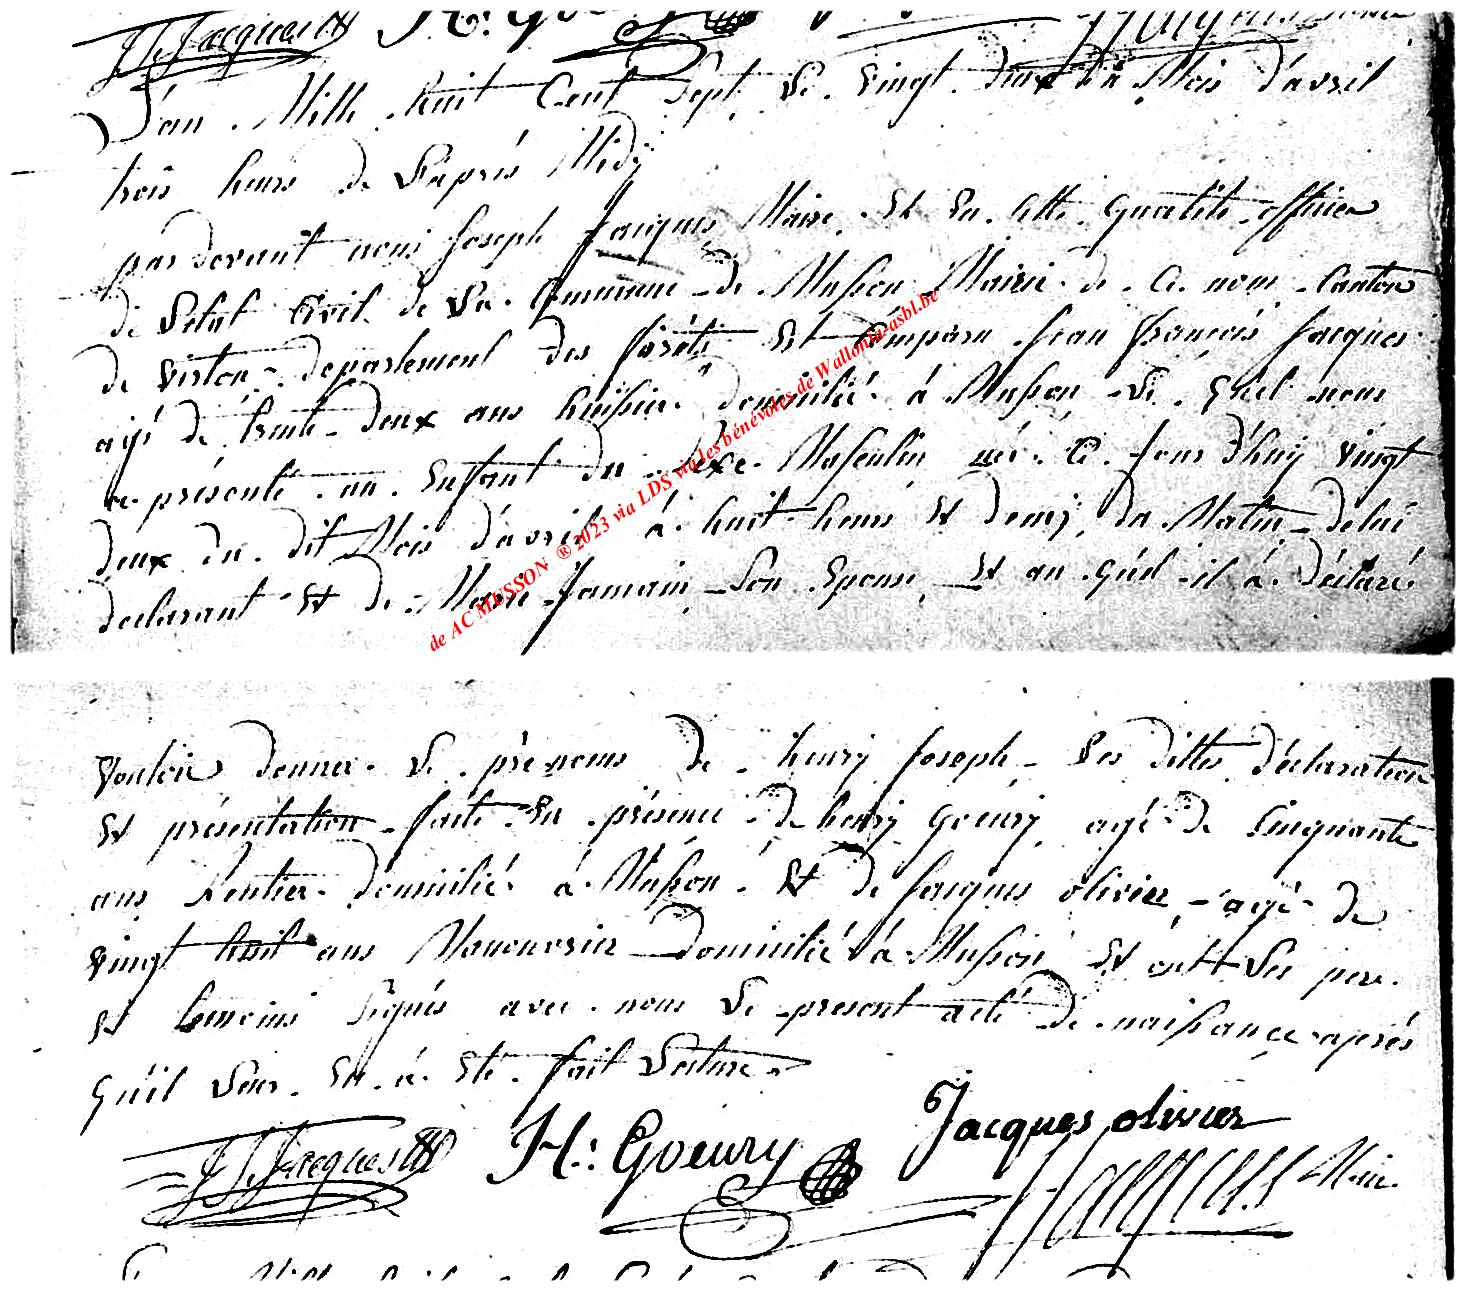 J f Jacques H: Goeury
L'an Mille huit Cent Sept Le vingt deux du Mois d'avril
trois heurs de L'aprés Midÿ
par devant nous Joseph Jacques Maire Et En Cette qualité officier
de L'etat Civil de La Commune de Musson Mairie de Ce nom Canton
de virton departement des forêts Est Comparu Jean françois Jacques
agé de trente deux ans huissier domicilié à Musson Le quel nous
a présenté un Enfant du Sexe Masculin né Ce Jour D'huÿ vingt
deux du dit Mois d'avril à huit heurs Et demÿ du Matin de lui
declarant Et de Marie Jamain Son Epouse Et au quel il à déclaré
de AC MUSSON ® 2023 via LDS via les bénévoles de Wallonia-asbl.be
Vouloir donner Le prénoms de henry Joseph Les dittes déclaration
Et présentation faite En présence de henry Goeury agé de Cinquante
ans Rentier domicilié à Musson Et de Jacques olivier agé de
vingt huit ans Manouvrier domicilié à Musson Et ontt Les pere
Et temoins Signés avec nous Le present acte de naissance aprés
qu'il Leur En à Eté fait Lecture
J f Jacques H: Goeury Jacques olivier
Jacques Maire